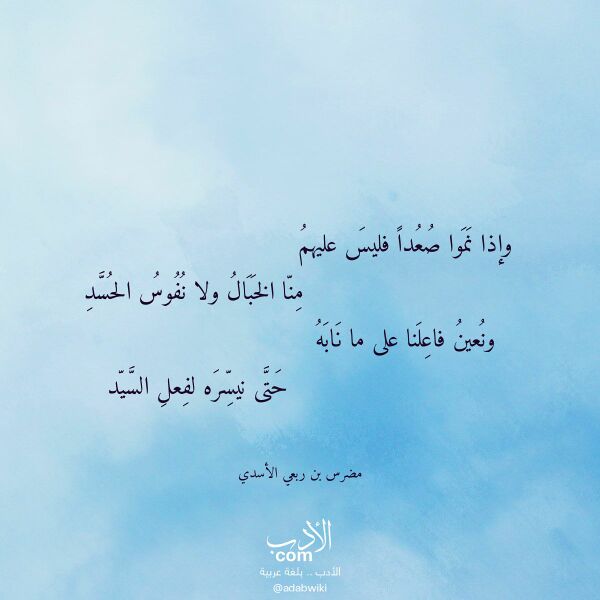 وإذا نَمَوا صُعُداً فليسَ عليهمُ
مِنّا الخَبَالُ ولا نُفُوسُ الحُسَّدِ
ونُعينُ فاعِلَنا على ما نَابَهُ
حَتَّى نيسِّرَه لفِعلِ السَّيّد
مضرس بن ربعي الأسدي
الأدب
com
الأدب .. بلغة عربية
@adabwiki